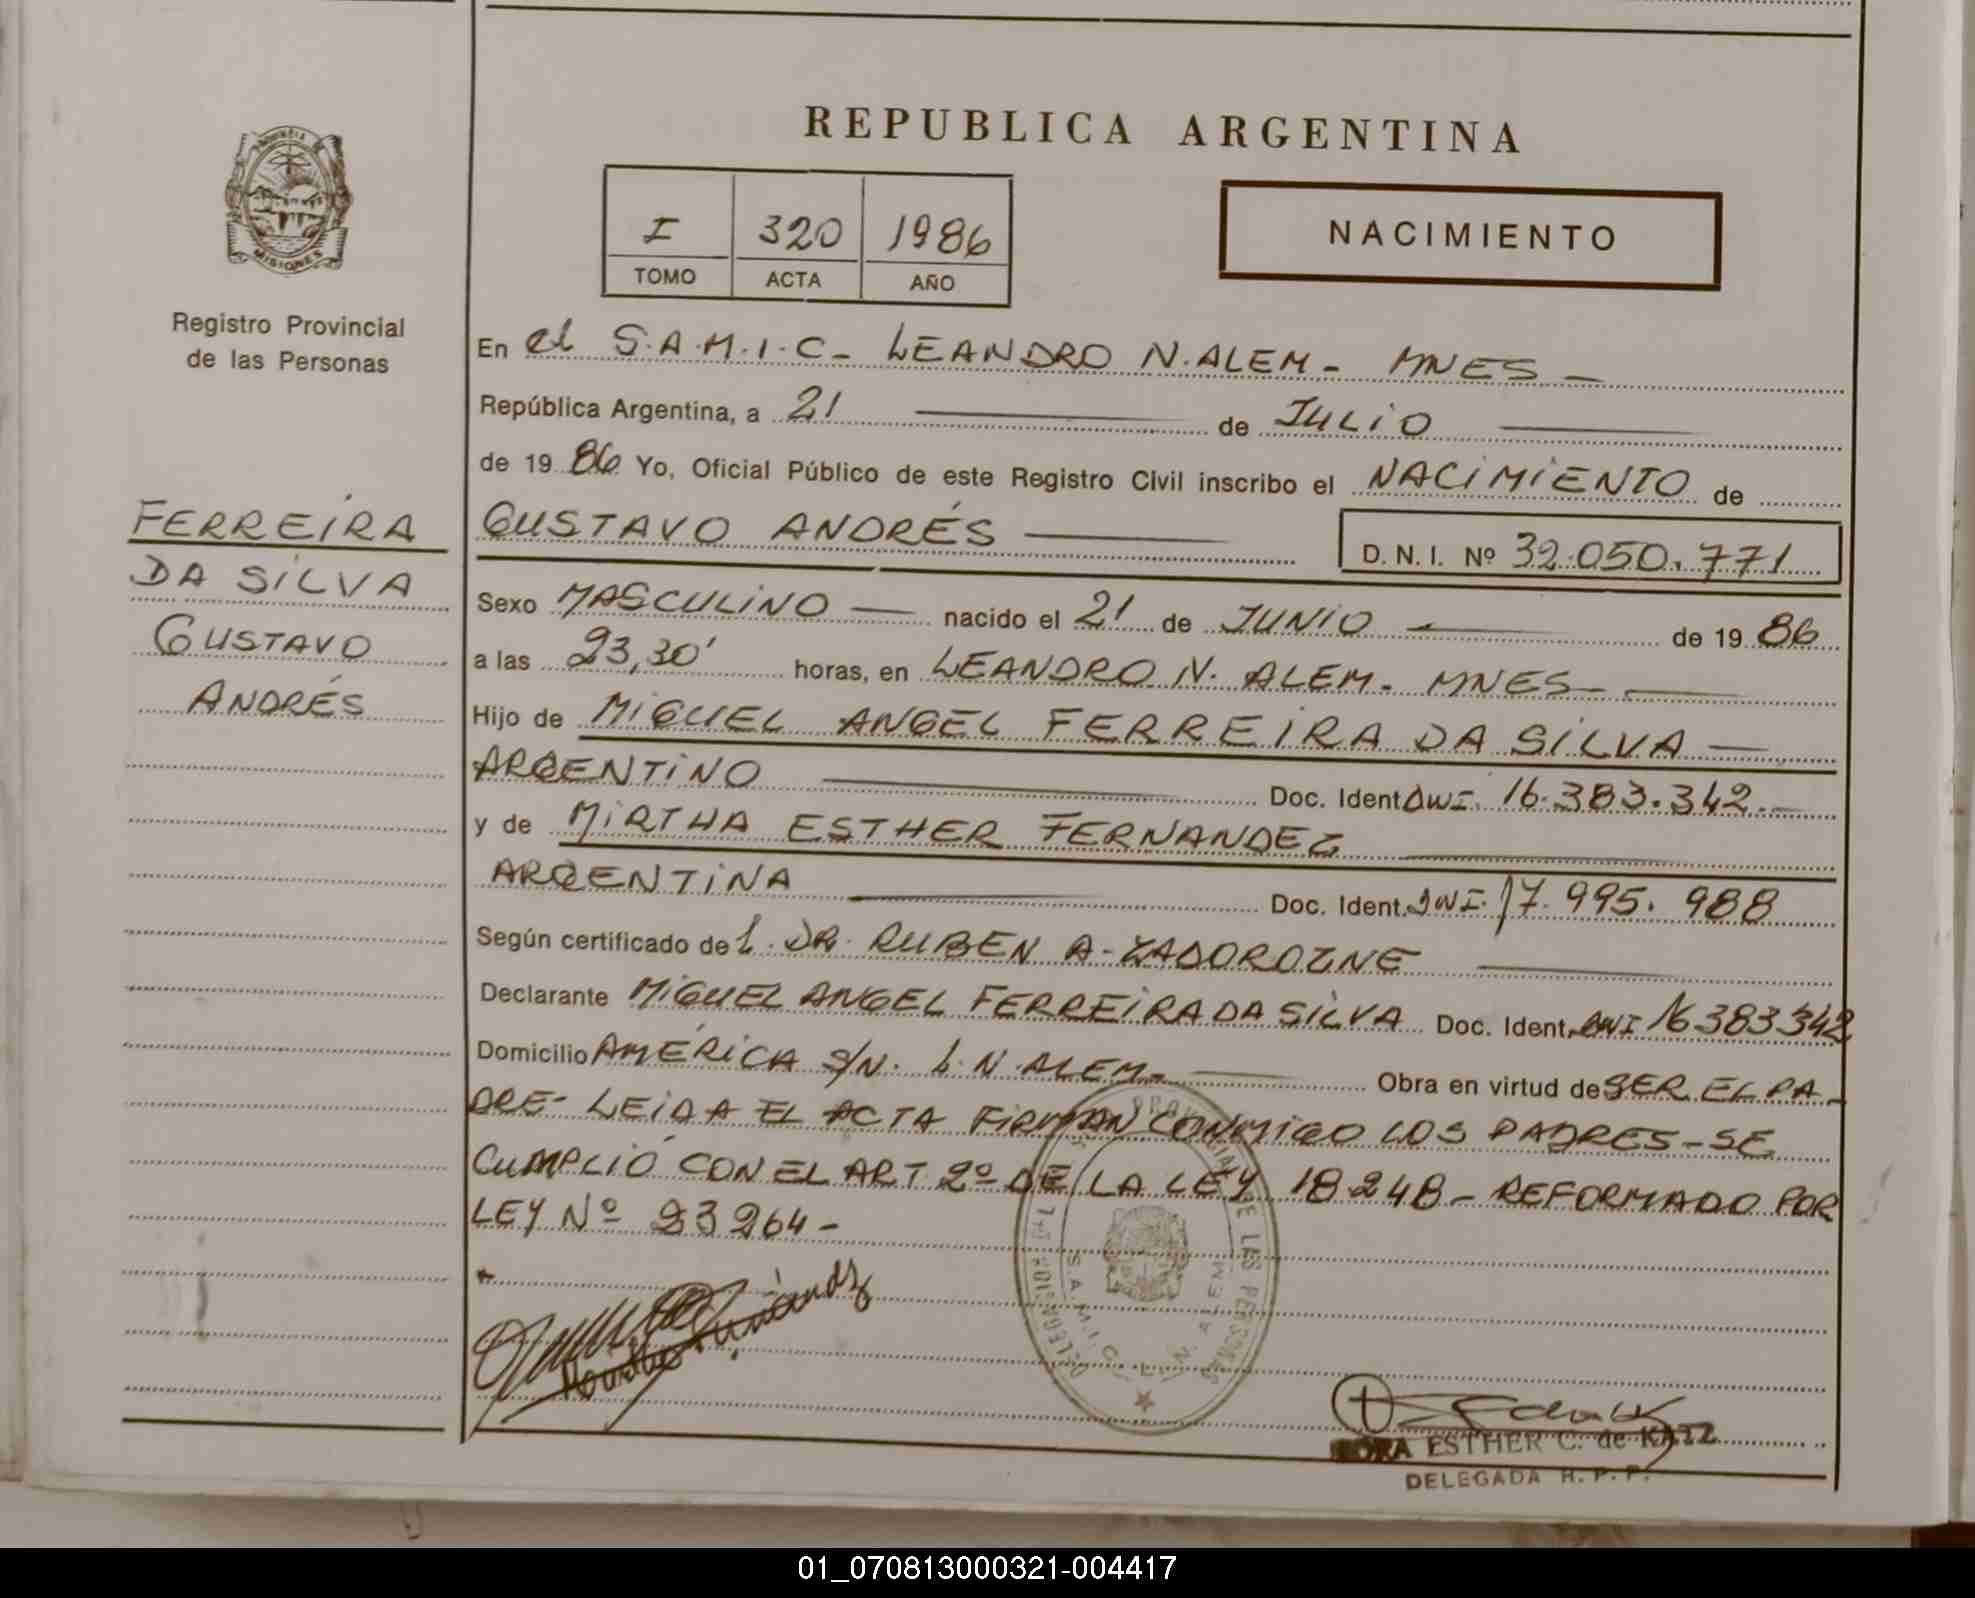 REPUBLICA ARGENTINA
I 320 1986
TOMO ACTA AÑO
NACIMIENTO
MISIONES
Registro Provincial
de las Personas
FERREIRA
DA SILVA
GUSTAVO
ANDRÉS
En el S.A.M.I.C- LEANDRO N. ALEM- MNES-
República Argentina, a 21 de JULIO
de 19 86 Yo, Oficial Público de este Registro Civil inscribo el NACIMIENTO de
GUSTAVO ANDRÉS
D. N. I. Nº 32.050.771
Sexo MASCULINO nacido el 21 de JUNIO de 19 86
a las 23,30' horas, en LEANDRO N. ALEM- MNES-
Hijo de MIGUEL ANGEL FERREIRA DA SILVA
ARGENTINO Doc. Ident. DNI. 16.383.342.-
y de MIRTHA ESTHER FERNANDEZ
ARGENTINA Doc. Ident. DNI. 17.995.988
Según certificado de L. DR. RUBEN A. ZADOROZNE
Declarante MIGUEL ANGEL FERREIRA DA SILVA Doc. Ident. DNI 16383342
Domicilio AMÉRICA S/N. L.N.ALEM- Obra en virtud de SER EL PA-
DRE- LEIDA EL ACTA FIRMAN CONMIGO LOS PADRES-SE
CUMPLIÓ CON EL ART 2º DE LA LEY 18248- REFORMADO POR
LEY Nº 23264-
DELEGACION DEL PROVINCIAL DE LAS PERSONAS
S.A.M.I.C. L.N. ALEM
ESTHER C. de KATZ
DELEGADA R. P. P.
01_070813000321-004417